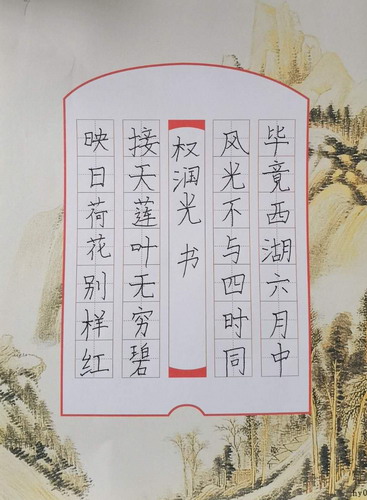 毕竟西湖六月中
风光不与四时同
权润光 书
接天莲叶无穷碧
映日荷花别样红